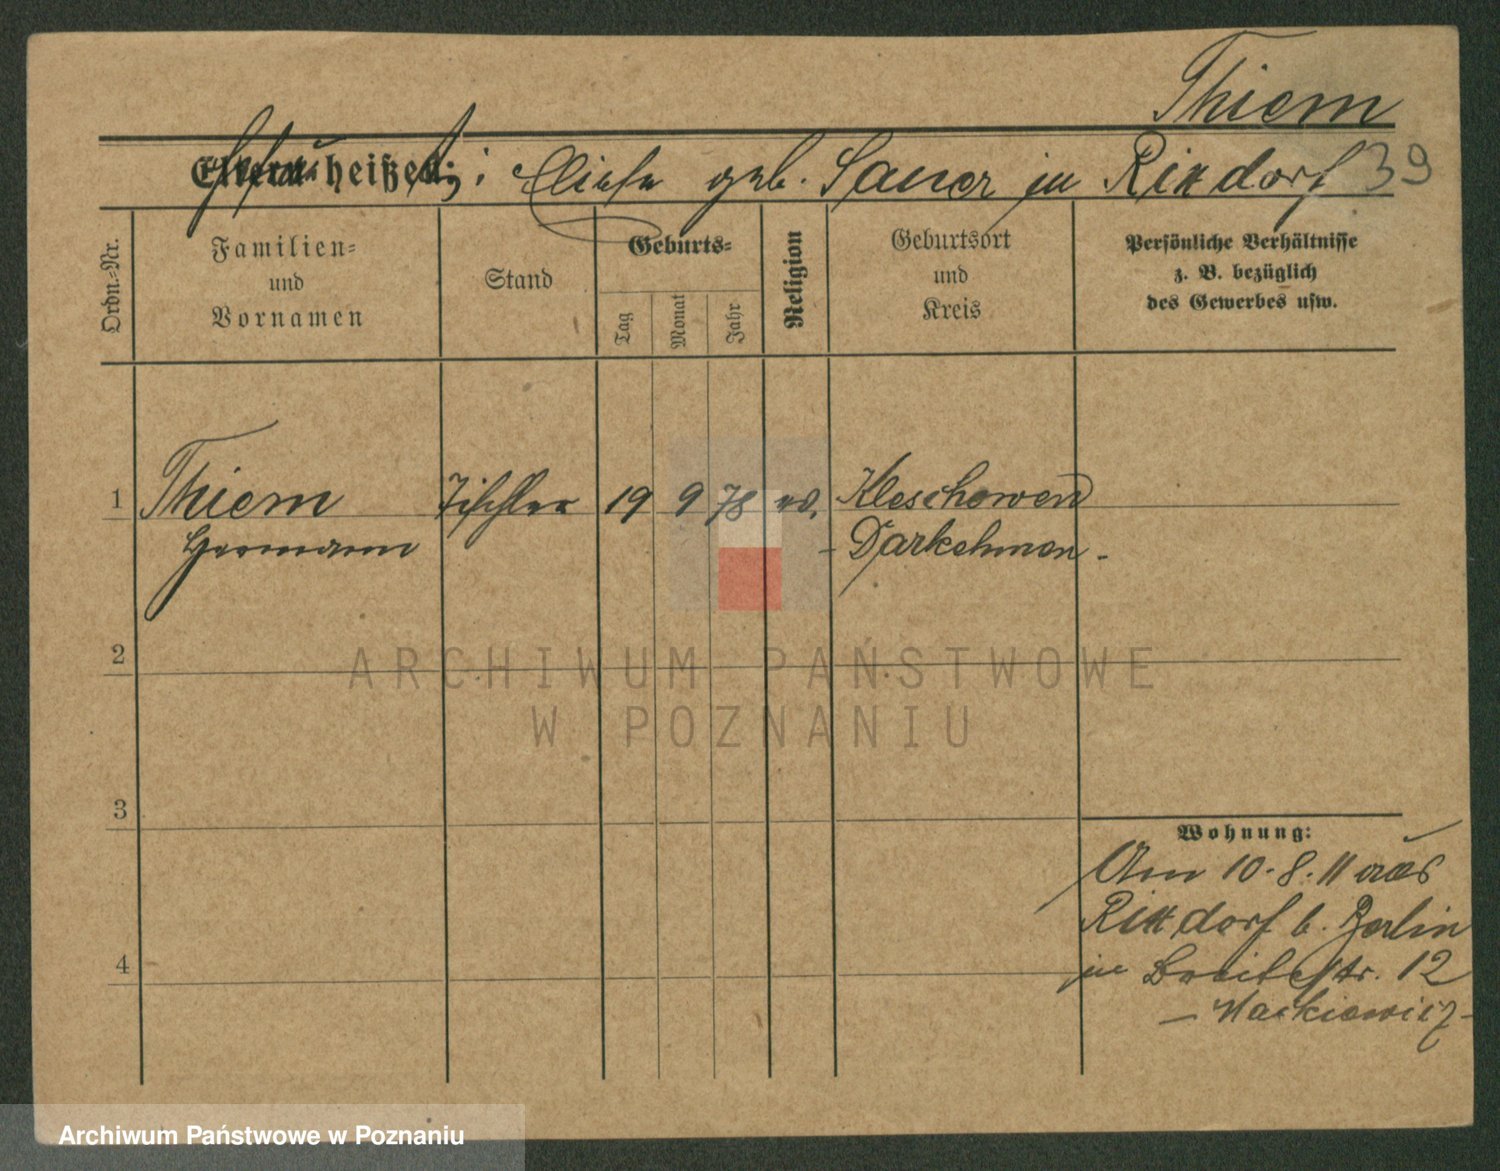 Thiem
39
Eltern heißen: Ehefrau: Eliese geb. Sauer in Rixdorf
Ordn.-Nr.
Familien-
und
Vornamen
Stand
Geburts-
Tag
Monat
Jahr
Religion
Geburtsort
und
Kreis
Persönliche Verhältnisse
z. B. bezüglich
des Gewerbes usw.
1 Thiem Tischler 19 9 78 ev. Kleschowen
Hermann - Darkehmen -
2
3
Wohnung:
Am 10.8.11 aus
Rixdorf b. Berlin
4
in Breitestr. 12
- Mackiewicz -
ARCHIWUM PAŃSTWOWE
W POZNANIU
Archiwum Państwowe w Poznaniu